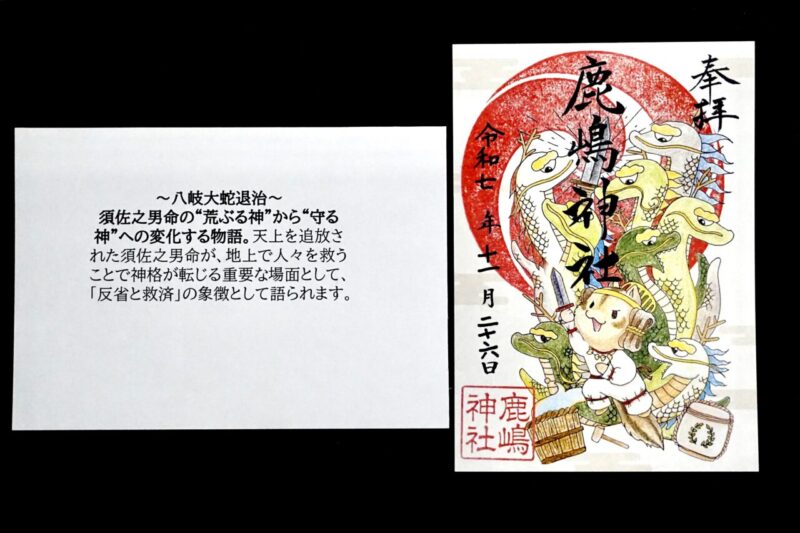 ～八岐大蛇退治～
須佐之男命の“荒ぶる神”から“守る
神”への変化する物語。天上を追放さ
れた須佐之男命が、地上で人々を救う
ことで神格が転じる重要な場面として、
「反省と救済」の象徴として語られます。
奉拝
鹿嶋神社
令和七年十一月二十六日
鹿嶋
神社